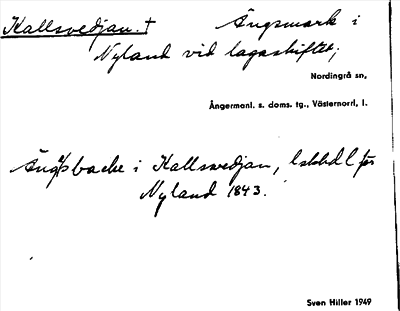 Kallsvedjan. † Ängsmark i
Nyland vid lagaskiftet;
Nordingrå sn,
Ångermanl. s. doms. tg., Västernorrl, l.
Ängsbacke i Kallsvedjan, lskbdl för
Nyland 1843.
Sven Hiller 1949